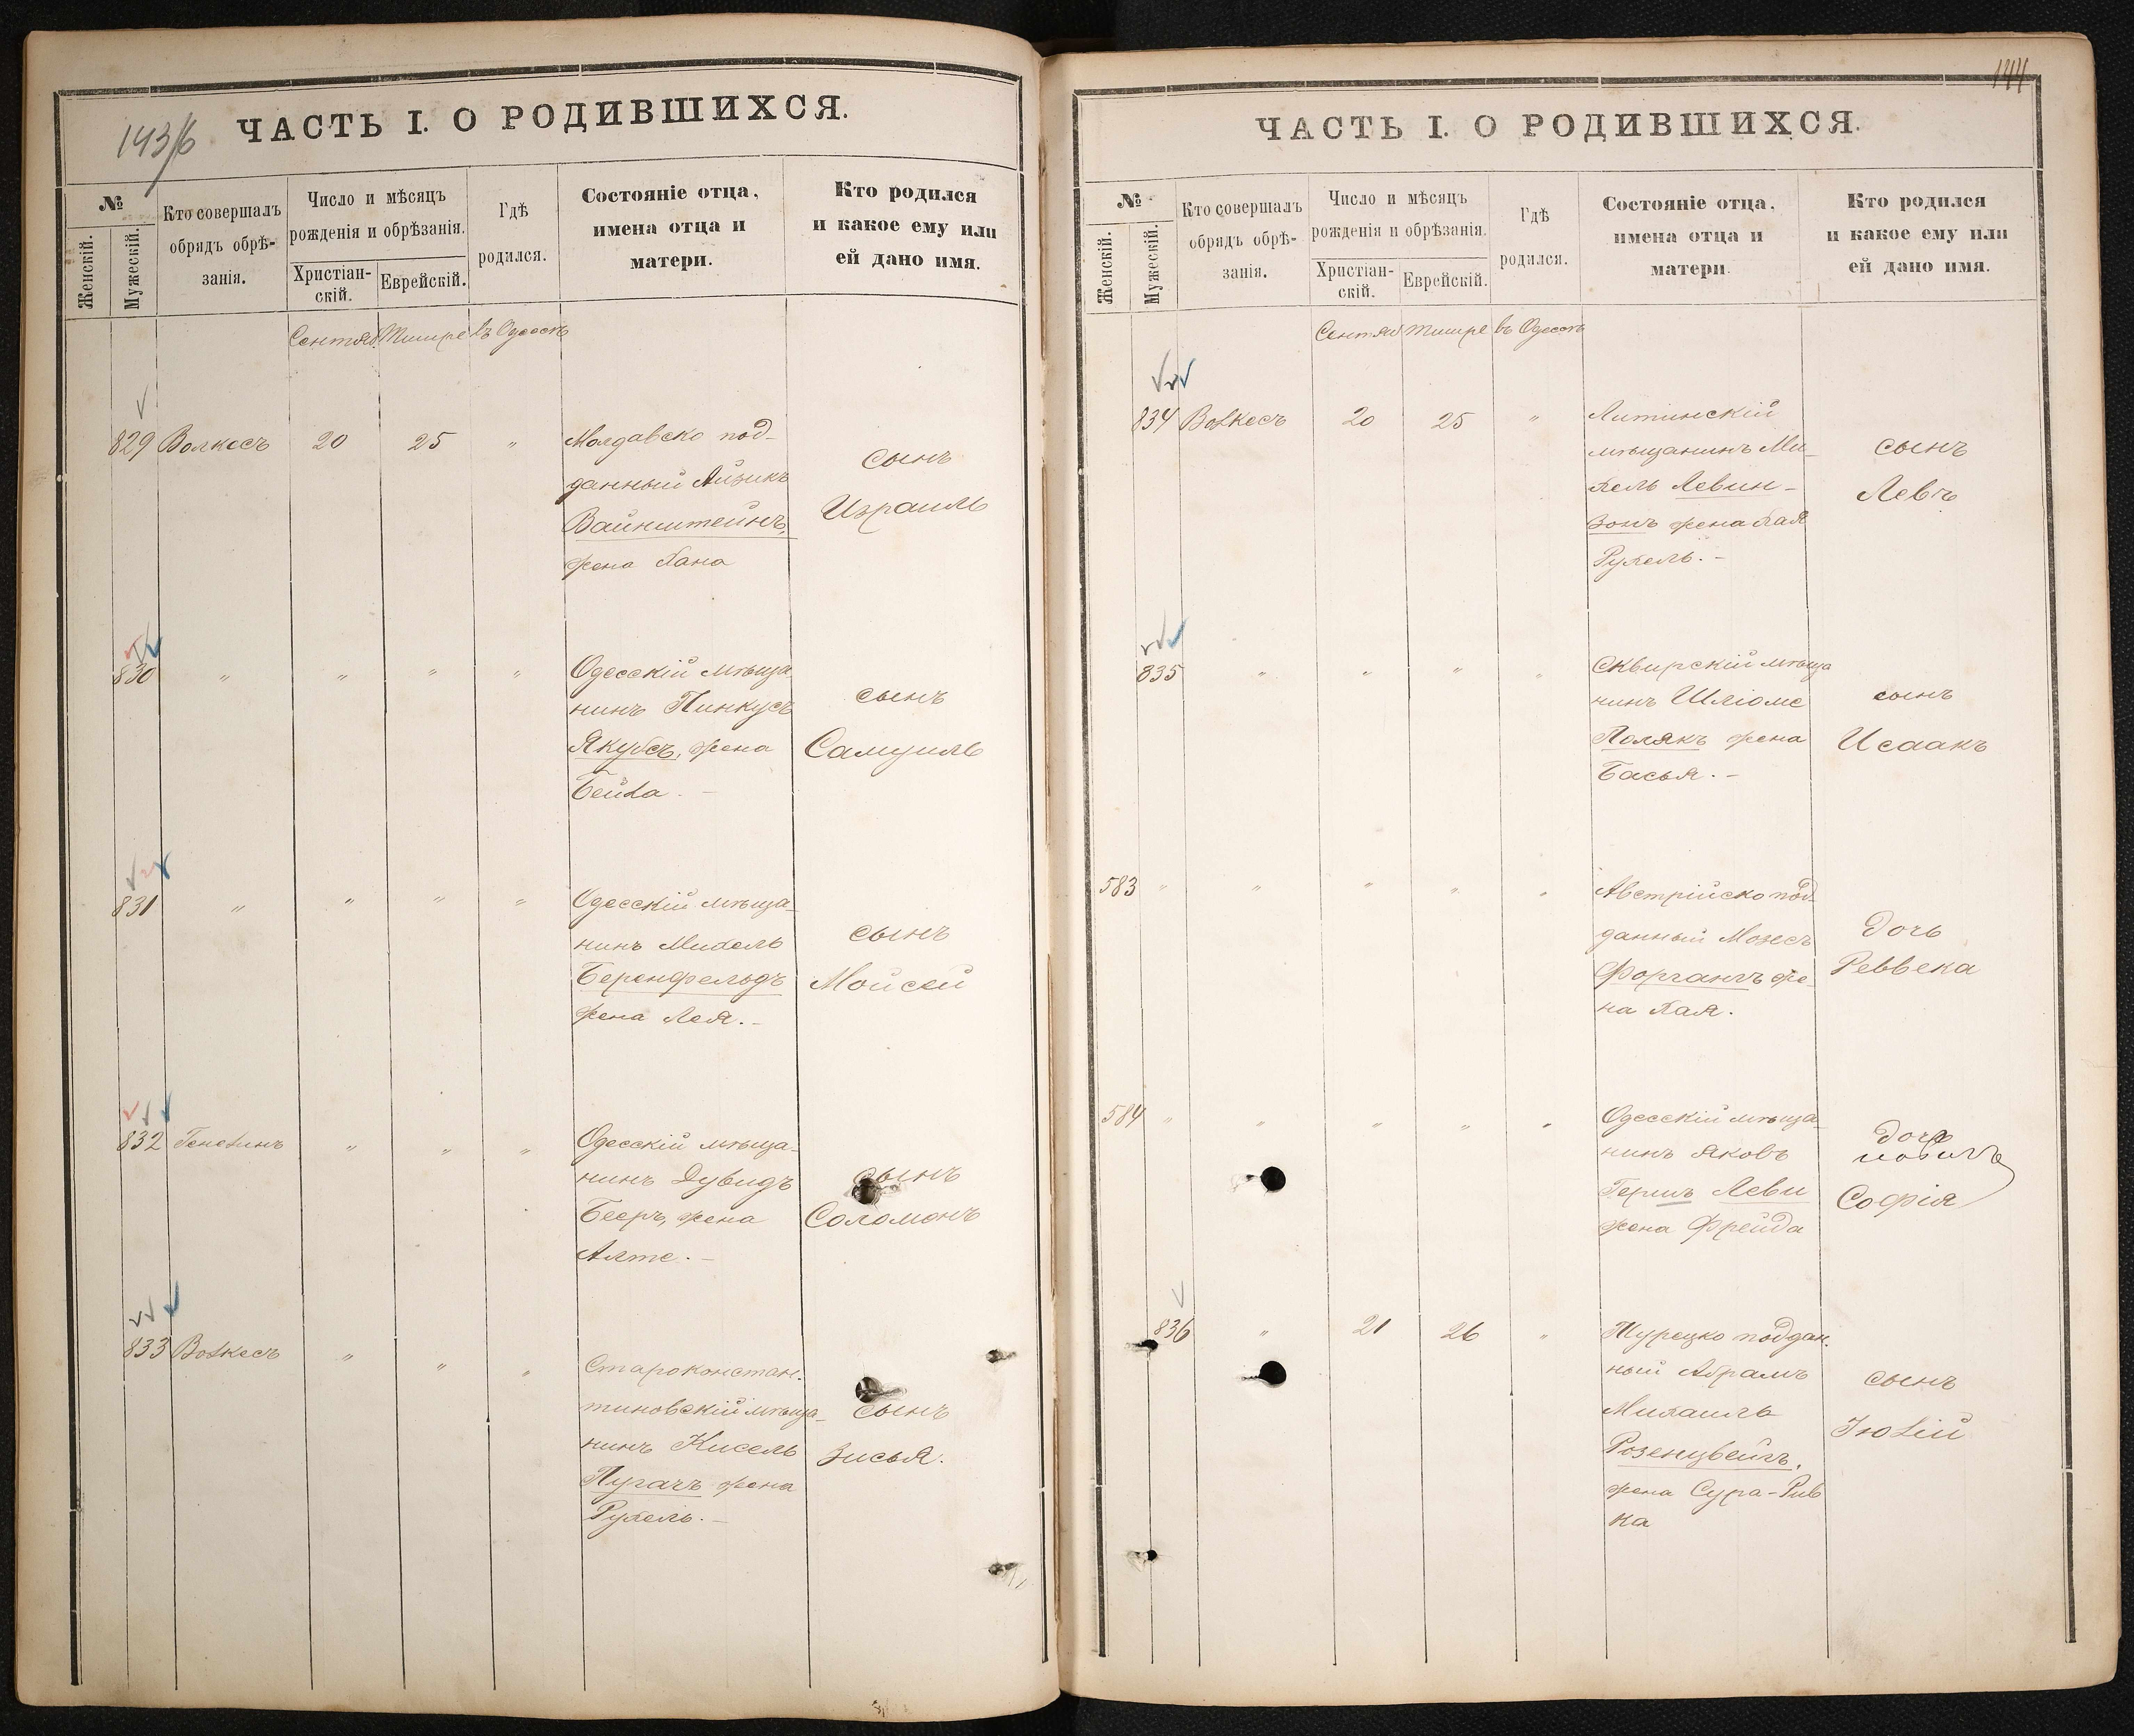 143/б ЧАСТЬ I. О РОДИВШИХСЯ.
№
Женскій.
Мужескій.
Кто совершалъ
обрядъ обрѣ-
занія.
Число и мѣсяцъ
рожденія и обрѣзанія.
Христіан-
скій.
Еврейскій.
Гдѣ
родился.
Состояніе отца,
имена отца и
матери.
Кто родился
и какое ему или
ей дано имя.
Сентяб. Тишре въ Одессѣ
829 Волкесъ 20 25 „ Молдавско под-
данный Айзикъ
Вайнштейнъ,
жена Хана
сынъ
Израиль
830 „ „ „ „ Одесскій мѣща
нинъ Пинкусъ
Якубсъ, жена
Бейла. –
сынъ
Самуиль
831 „ „ „ „ Одесскій мѣща-
нинъ Михель
Беренфельдъ
жена Лея. –
сынъ
Мойсей
832 Генелинъ „ „ „ Одесскій мѣща-
нинъ Дувидъ
Бееръ, жена
Алте. –
сынъ
Соломонъ
833 Волкесъ „ „ „ Староконстан-
тиновскій мѣща-
нинъ Кисель
Пугачъ жена
Рухель. –
сынъ
Зисья.
144
ЧАСТЬ I. О РОДИВШИХСЯ.
№
Женскій.
Мужескій.
Кто совершалъ
обрядъ обрѣ-
занія.
Число и мѣсяцъ
рожденія и обрѣзанія.
Христіан-
скій.
Еврейскій.
Гдѣ
родился.
Состояніе отца,
имена отца и
матери.
Кто родился
и какое ему или
ей дано имя.
Сентяб Тишре въ Одессѣ
834 Волкесъ 20 25 „ Литинскій
мѣщанинъ Ми-
хель Левин-
зонъ жена Хая
Рухель. –
сынъ
Левъ
835 „ „ „ „ Сквирскій мѣща
нинъ Шліоме
Полякъ жена
Басья. –
сынъ
Исаакъ
583 „ „ „ „ „ Австрійско под-
данный Мозесъ
Форгангъ же-
на Хая.
дочь
Реввека
584 „ „ „ „ „ Одесскій мѣща-
нинъ Яковъ
Гершъ Леви
жена Фрейда
дочь
Софія
836 „ 21 26 „ Турецко поддан.
ный Абрамъ
Михаиль
Розенцвейгъ,
жена Сура-Рив
ка
сынъ
Юлій